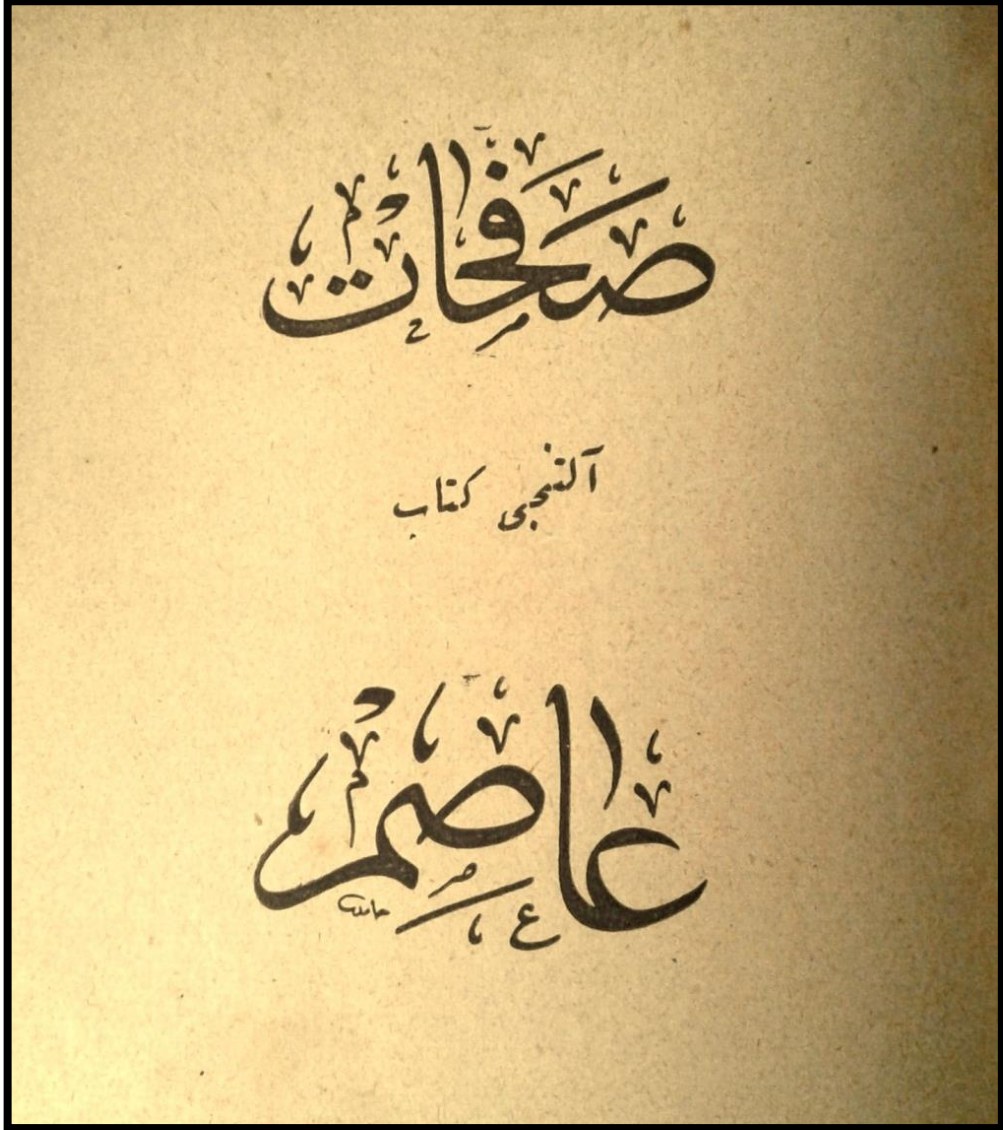 صفحات
آلتنجی کتاب
عاصم